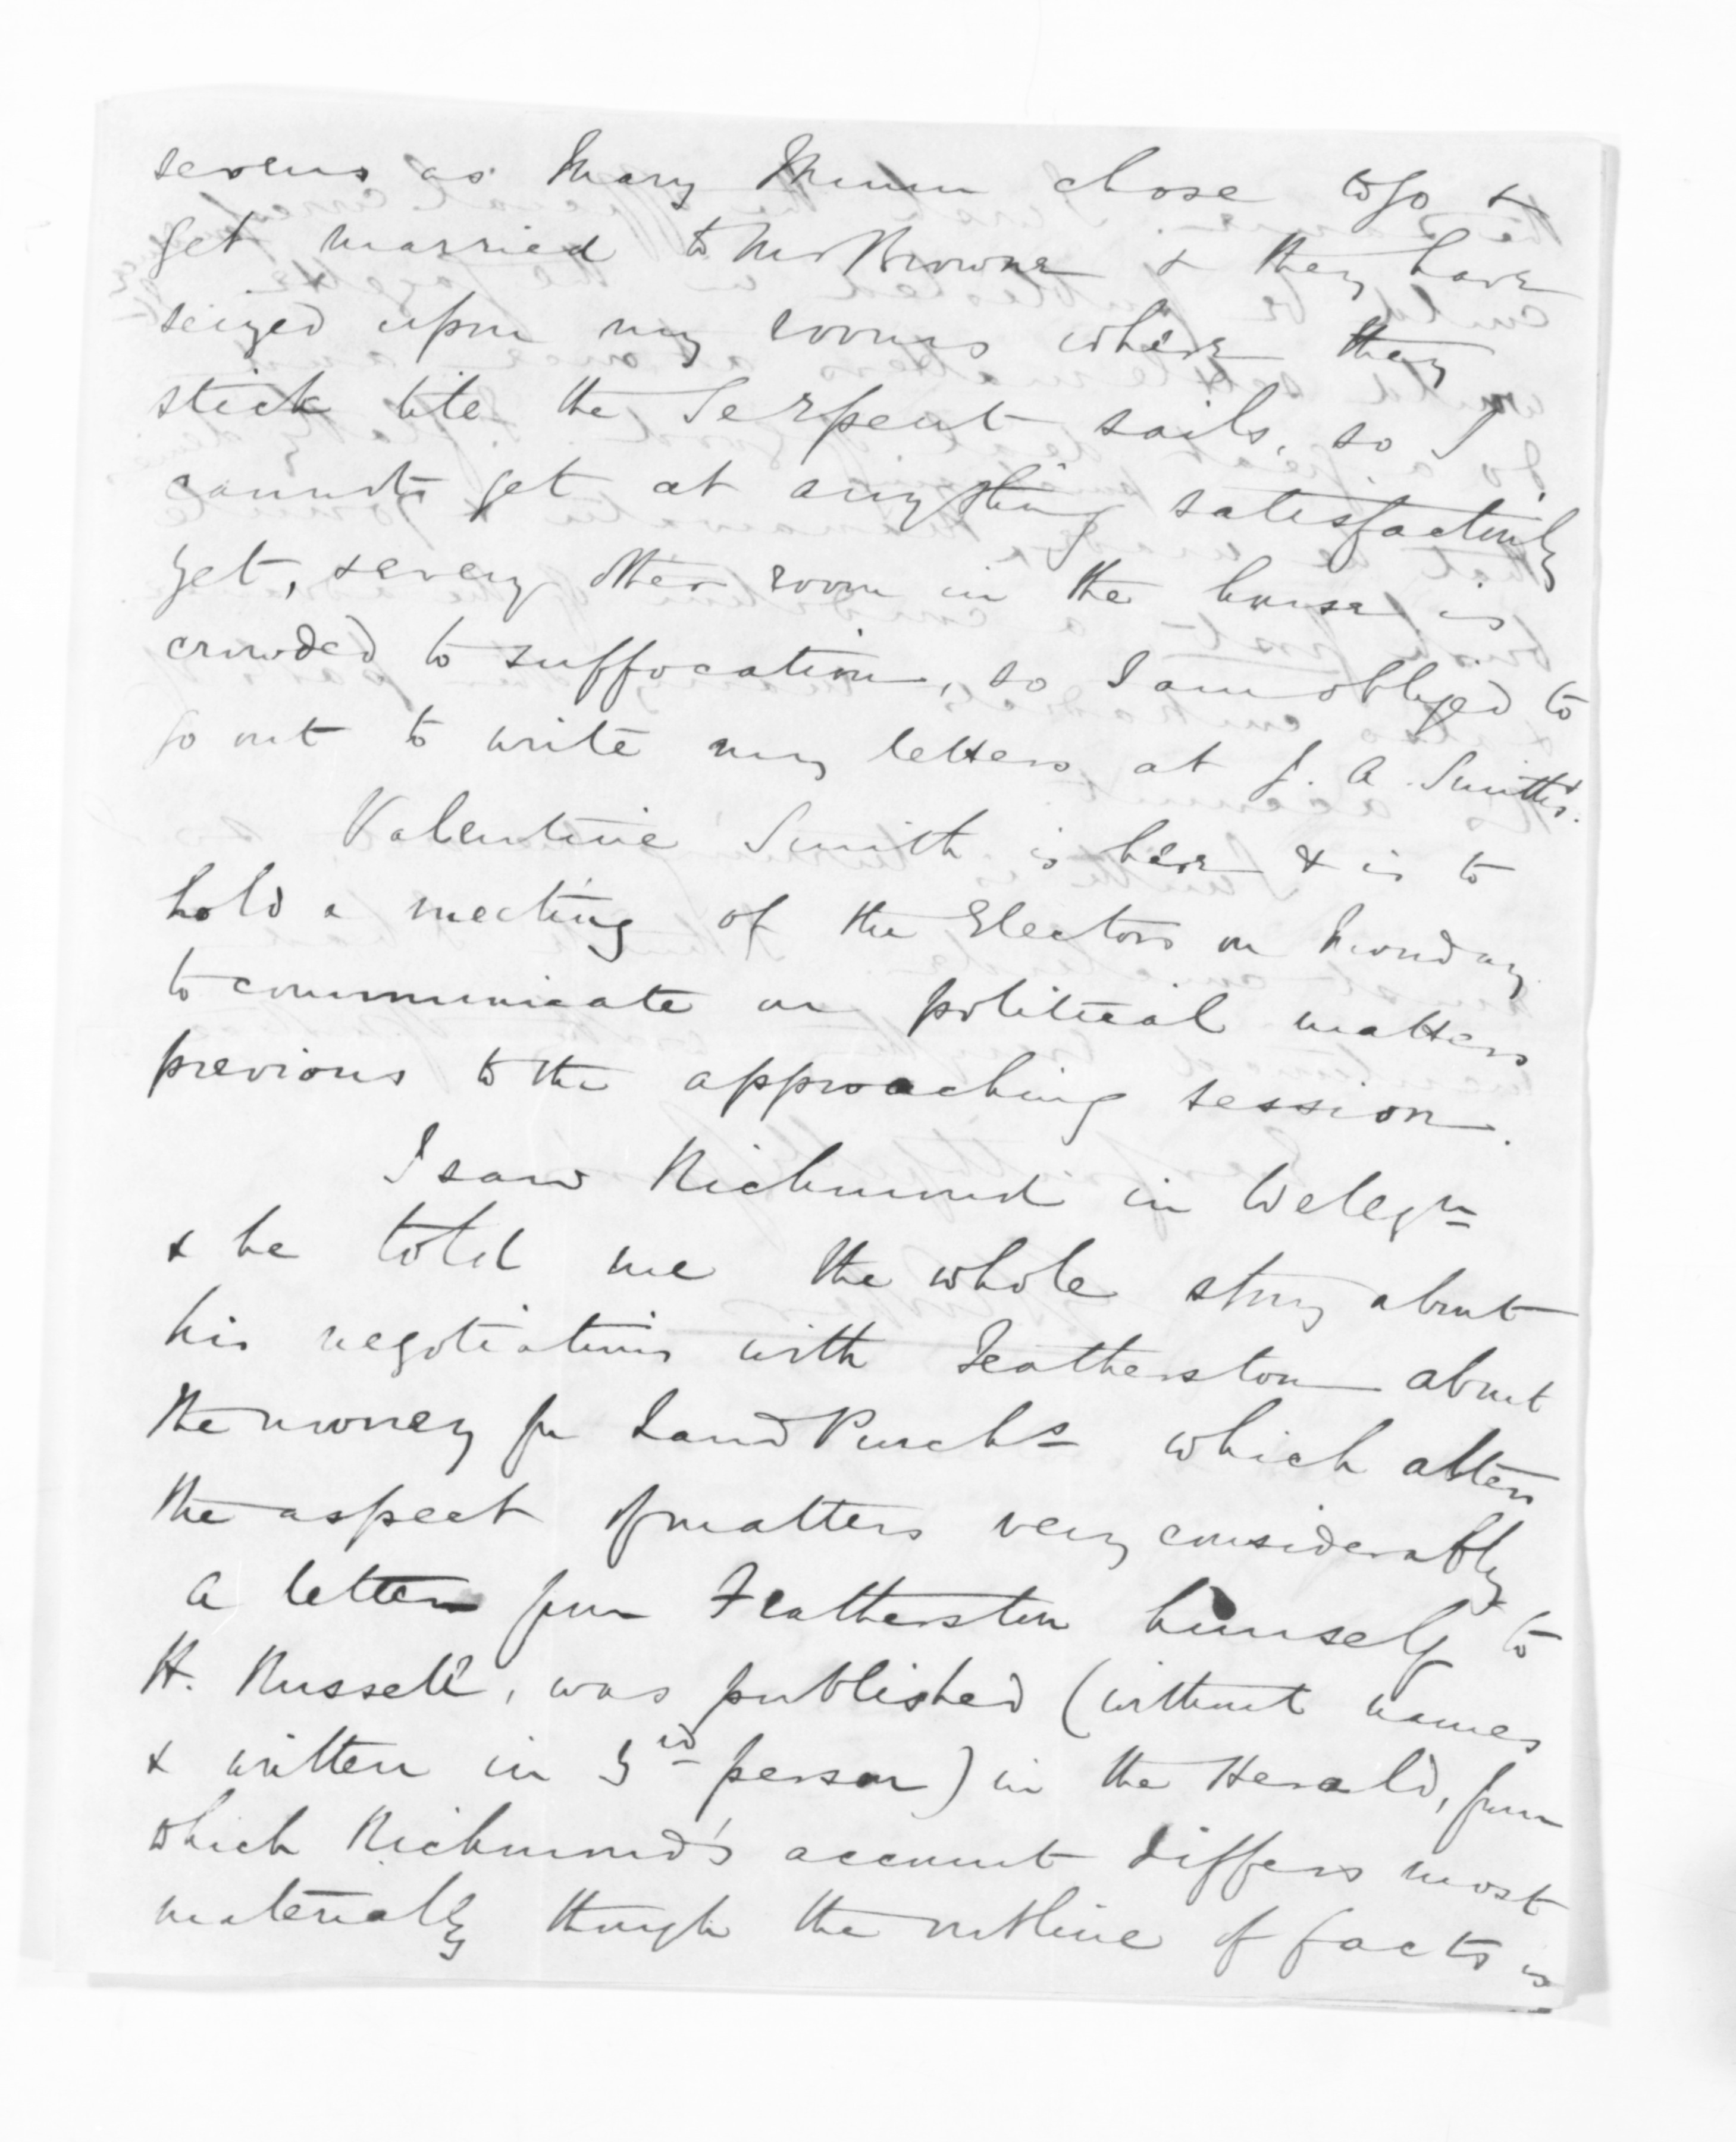 sevens as Mary Munn chose to go &
get married to Mr Browne & they have
seized upon my rooms where they
stick till the Serpent sails, so I
cannot get at anything satisfactorily
yet, & every other room in the house is
crowded to suffocation, so I am obliged to
go out to write my letters at J. A. Smith's.
Valentine Smith is here & is to
hold a meeting of the Electors on Monday
to communicate on political matters
previous to the approaching session.
I saw Richmond in Wellgn
& he told me the whole story about
his negotiations with Featherston about
the money for Land Purchs which alters
the aspect of matters very considerably
A letter from Featherston himself to
H. Russell, was published (without names
& written in 3rd person) in the Herald, from
which Richmond's account differs most
materially though the outline of facts is